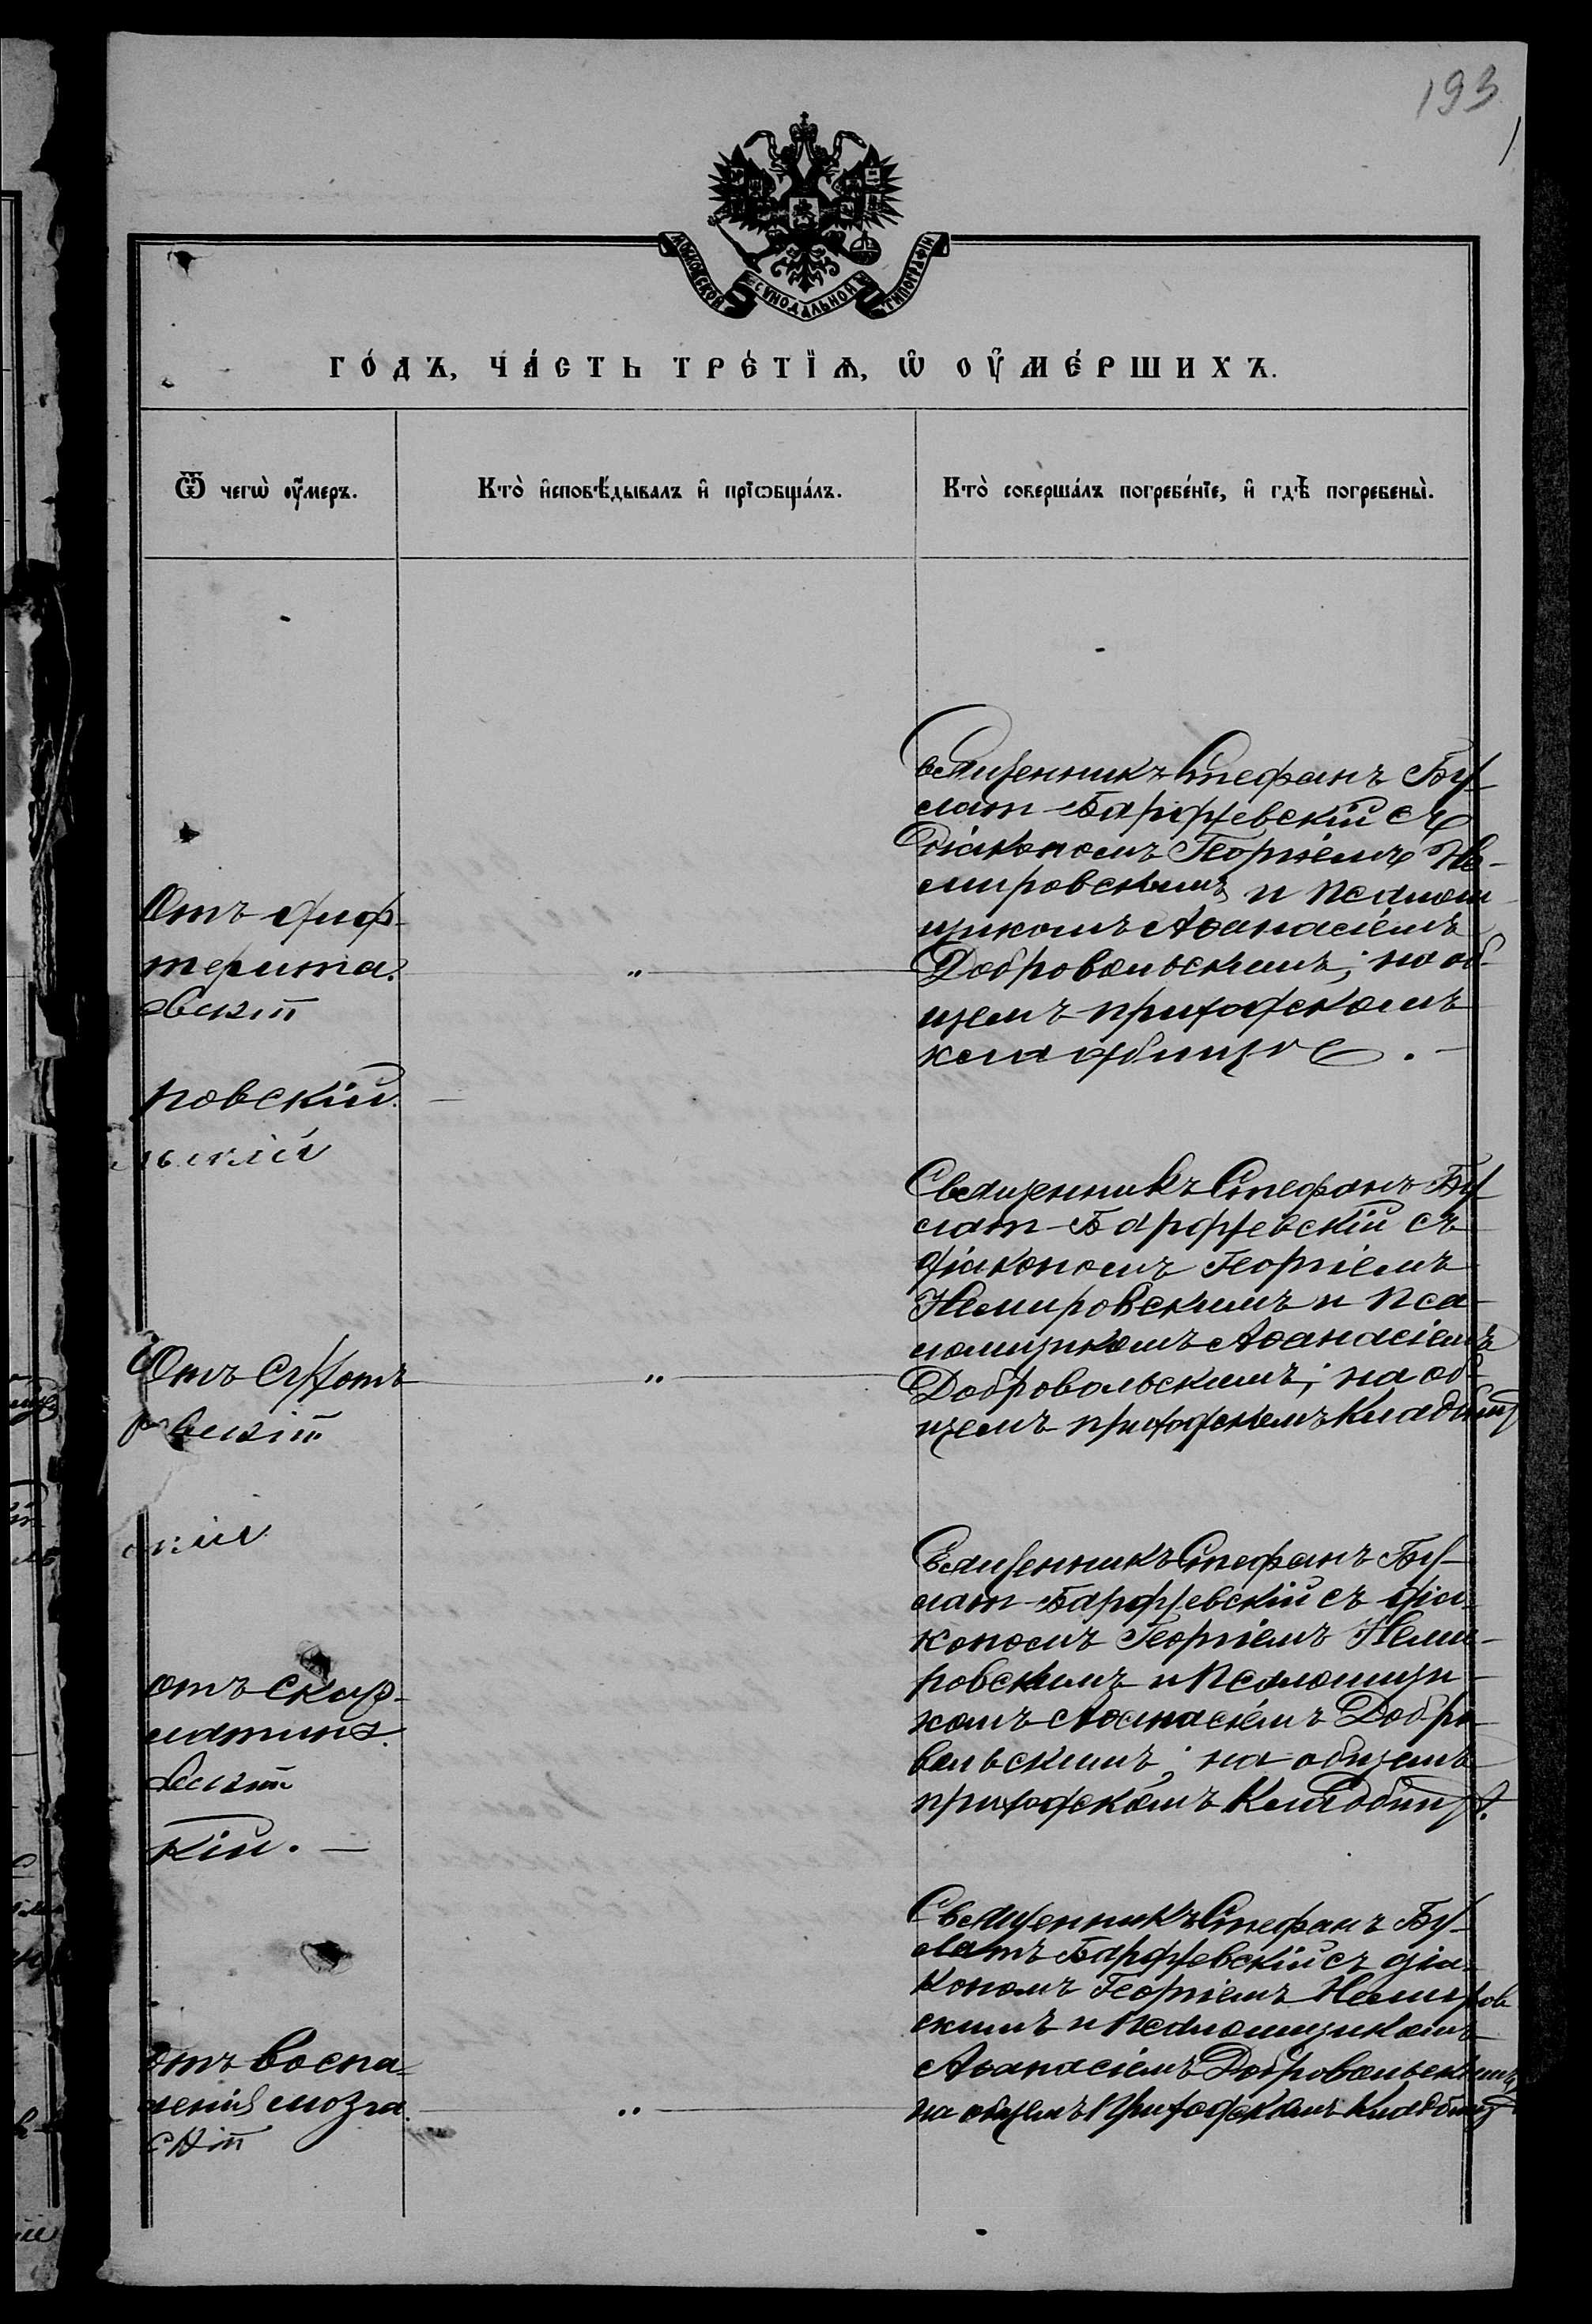 193
МОСКОВСКОЙ СѴНОДАЛЬНОЙ ТИПОГРАФІИ
ГО́ДЪ, ЧА́СТЬ ТРЕ́ТЇѦ, Ѡ҆ ОУ҆МЕ́РШИХЪ.
Ѿ чегѡ̀ оу҆́меръ.
Кто̀ и҆сповѣ́дывалъ и҆ прїѡбща́лъ.
Кто̀ соверша́лъ погребе́нїе, и҆ гдѣ̀ погребены̀.
Священникъ Стефанъ Бу-
лат-Барфревскій съ
Діакономъ Георгіемъ Не-
мировскимъ и псалом-
щикомъ Аѳанасіемъ
Добровольскимъ; на об-
щемъ приходскомъ
кладбищѣ.
Отъ диф-
терита.
"
евскій
ровскій.
льскій
Священникъ Стефанъ Бу-
лат-Барфревскій съ
діакономъ Георгіемъ
Немировскимъ и пса-
ломщикомъ Аѳанасіемъ
Добровольскимъ; на об-
щемъ приходскомъ кладбищ
Отъ сухотъ
"
евскій
скій
Священникъ Стефанъ Бу-
лат-Барфревскій съ діа-
кономъ Георгіемъ Неми-
ровскимъ и псаломщи-
комъ Аѳанасіемъ Добро-
вольскимъ; на общемъ
приходскомъ кладбищѣ.
отъ скар-
латины.
вскій
кій. —
Священникъ Стефанъ Бу-
латъ Барфревскій съ діа-
кономъ Георгіемъ Немиров
скимъ и псаломщикомъ
Аѳанасіемъ Добровольскимъ,
на общемъ приходскомъ кладбищ
Отъ воспа-
ленія мозга.
"
скій